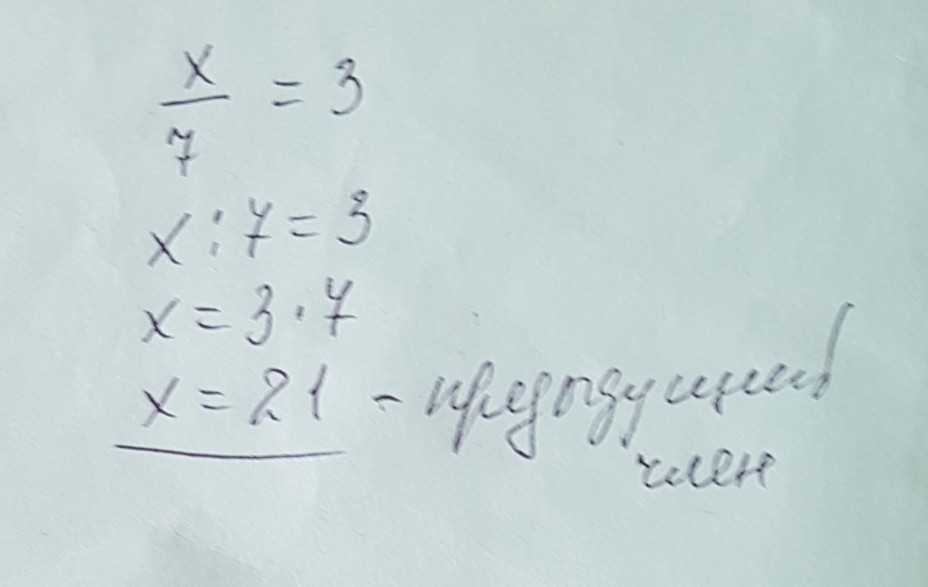 x/7 = 3
x : 7 = 3
x = 3 · 7
x = 21 - предыдущий
член